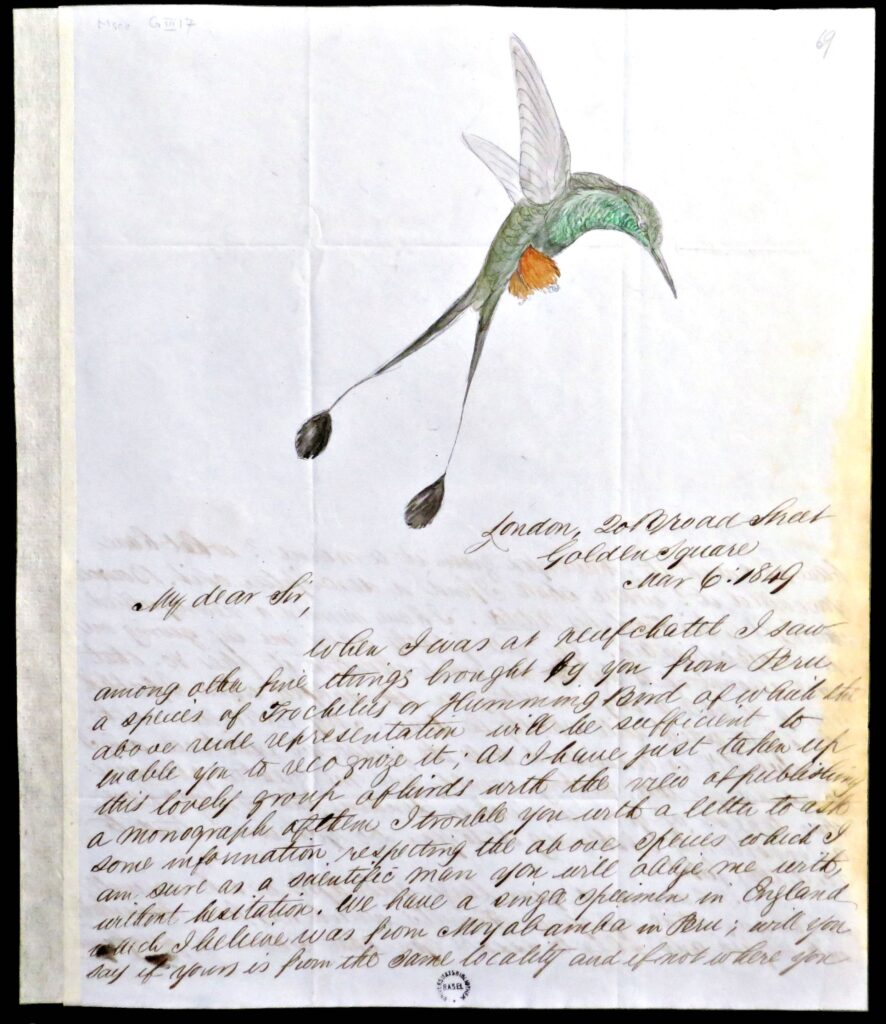 Mscr G III 17
69
London, 20 Broad Street
Golden Square
Mar 6: 1849
My dear Sir,
When I was at neufchatel I saw
among other fine things brought by you from Peru
a species of Trochilus or Humming Bird of which the
above rude representation will be sufficient to
enable you to recognize it; As I have just taken up
this lovely group of birds with the view of publishing
a monograph of them I trouble you with a letter to ask
some information respecting the above species which I
am sure as a scientific man you will oblige me with,
without hesitation. We have a single specimen in England
which I believe was from Moyabamba in Peru; will you
say if yours is from the same locality and if not where you
BASEL